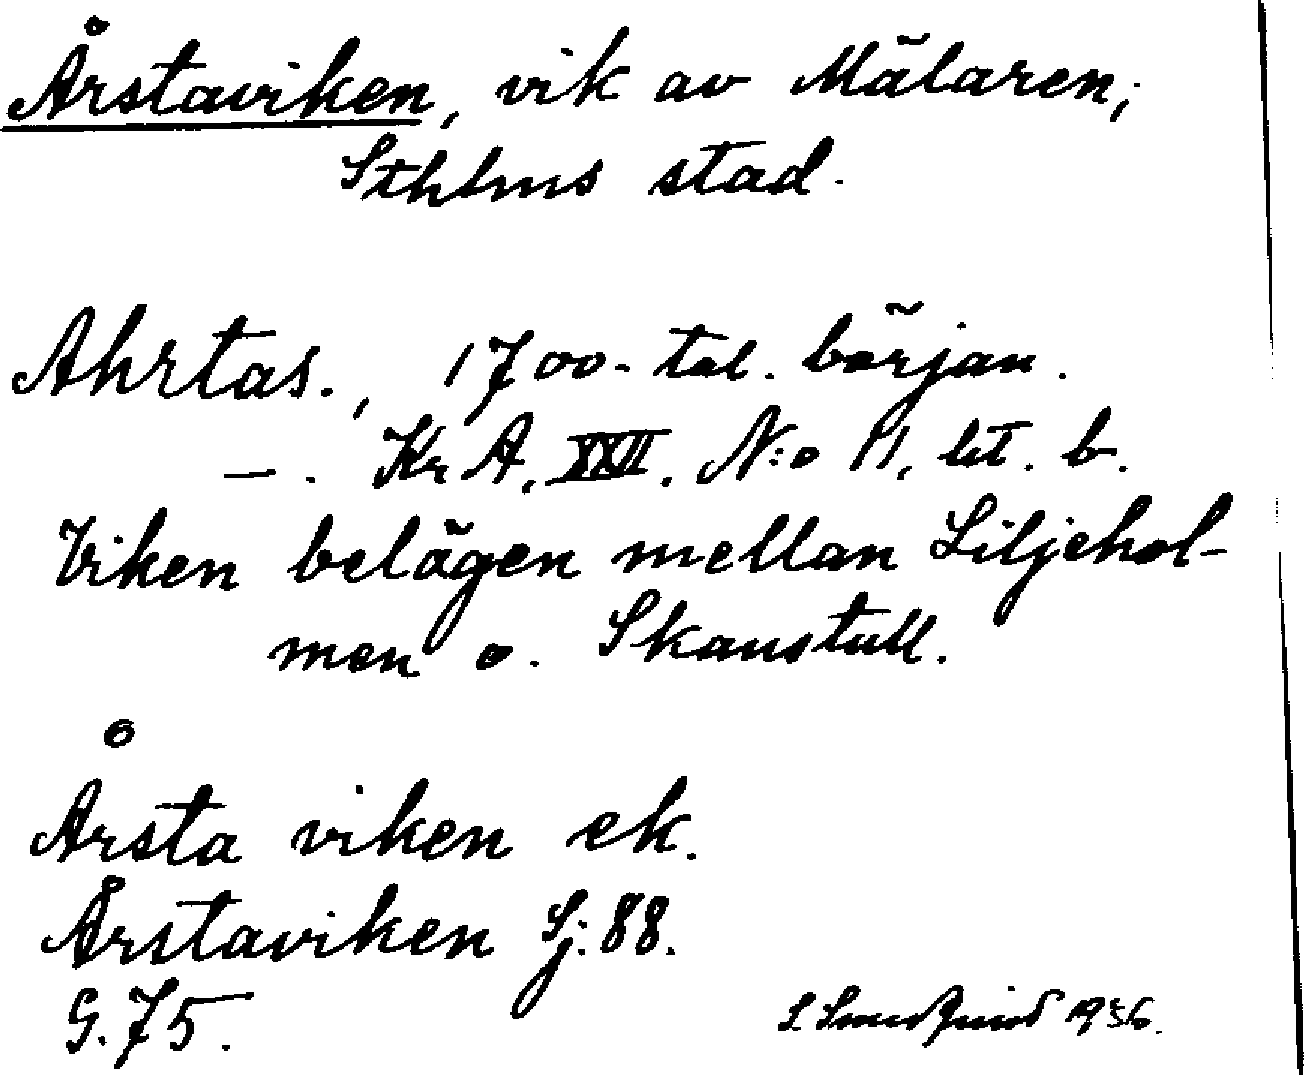 Årstaviken, vik av Mälaren,
Sthlms stad.
Ahrtas., 1700-tal. början.
—. KrA, XXII. N:o 11, lit. b.
Viken belägen mellan Liljehol-
men o. Skanstull.
Årsta viken ek.
Årstaviken Sj: 88.
G. 75.
1936.